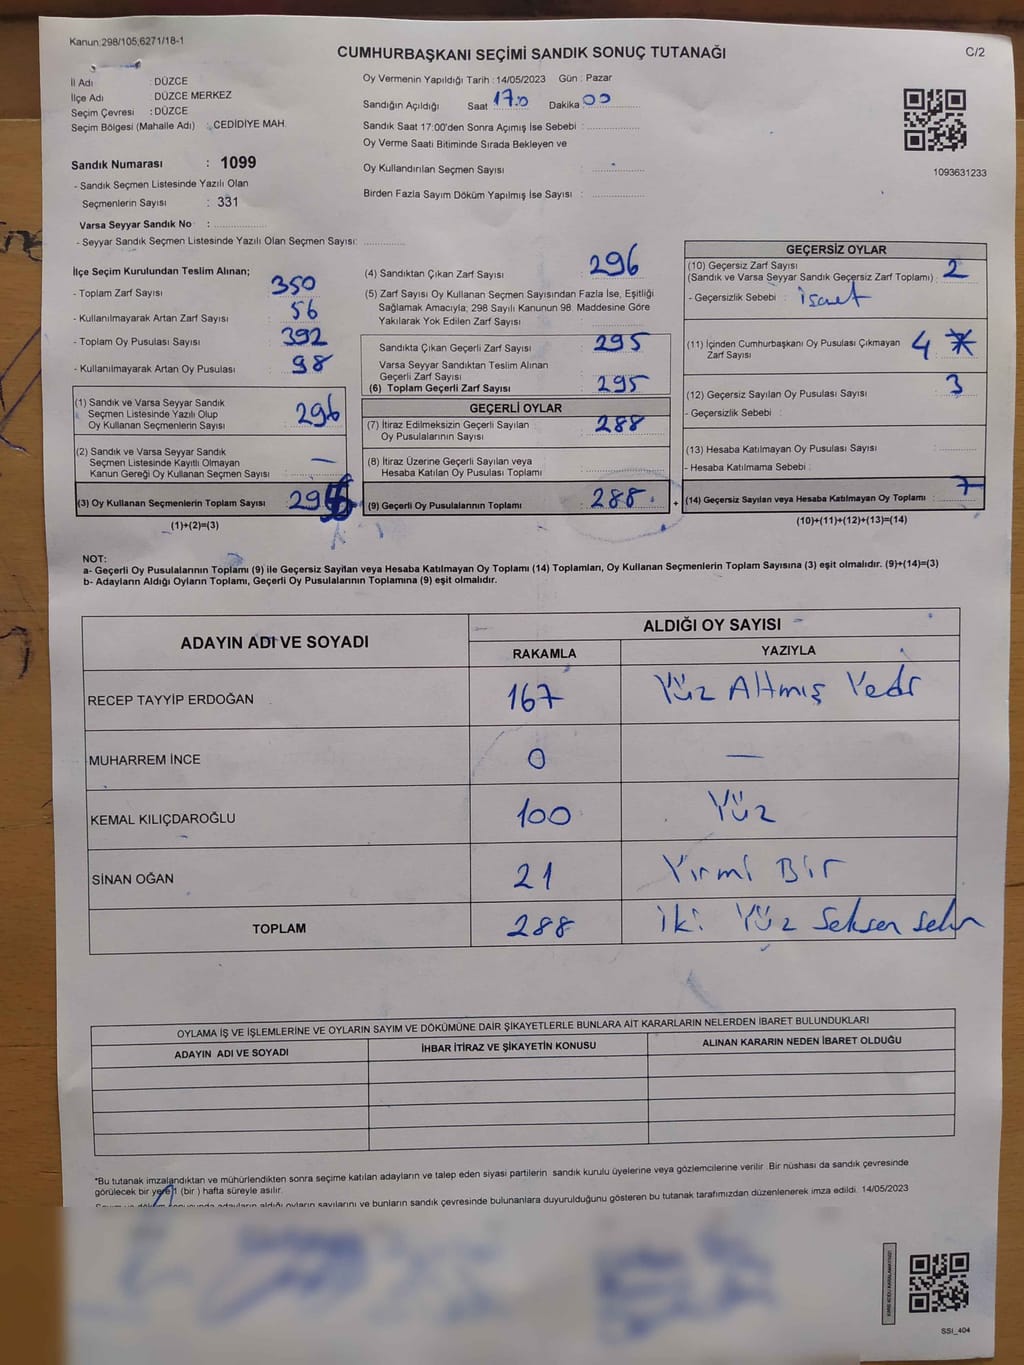 Kanun:298/105,6271/18-1
CUMHURBAŞKANI SEÇİMİ SANDIK SONUÇ TUTANAĞI
C/2
İl Adı : DÜZCE
İlçe Adı : DÜZCE MERKEZ
Seçim Çevresi : DÜZCE
Seçim Bölgesi (Mahalle Adı) : CEDİDİYE MAH.
Oy Vermenin Yapıldığı Tarih : 14/05/2023 Gün : Pazar
Sandığın Açıldığı Saat 17.0 Dakika 00
Sandık Saat 17:00'den Sonra Açımış İse Sebebi :
Oy Verme Saati Bitiminde Sırada Bekleyen ve
Oy Kullandırılan Seçmen Sayısı :
Birden Fazla Sayım Döküm Yapılmış İse Sayısı :
1093631233
Sandık Numarası : 1099
- Sandık Seçmen Listesinde Yazılı Olan
Seçmenlerin Sayısı : 331
Varsa Seyyar Sandık No :
- Seyyar Sandık Seçmen Listesinde Yazılı Olan Seçmen Sayısı:
İlçe Seçim Kurulundan Teslim Alınan;
- Toplam Zarf Sayısı : 350
- Kullanılmayarak Artan Zarf Sayısı : 56
- Toplam Oy Pusulası Sayısı : 392
- Kullanılmayarak Artan Oy Pusulası : 98
(1) Sandık ve Varsa Seyyar Sandık
Seçmen Listesinde Yazılı Olup
Oy Kullanan Seçmenlerin Sayısı : 296
(2) Sandık ve Varsa Seyyar Sandık
Seçmen Listesinde Kayıtlı Olmayan
Kanun Gereği Oy Kullanan Seçmen Sayısı : —
(3) Oy Kullanan Seçmenlerin Toplam Sayısı : 29
(1)+(2)=(3)
(4) Sandıktan Çıkan Zarf Sayısı : 296
(5) Zarf Sayısı Oy Kullanan Seçmen Sayısından Fazla İse, Eşitliği
Sağlamak Amacıyla, 298 Sayılı Kanunun 98. Maddesine Göre
Yakılarak Yok Edilen Zarf Sayısı :
Sandıkta Çıkan Geçerli Zarf Sayısı : 295
Varsa Seyyar Sandıktan Teslim Alınan
Geçerli Zarf Sayısı :
(6) Toplam Geçerli Zarf Sayısı : 295
GEÇERLİ OYLAR
(7) İtiraz Edilmeksizin Geçerli Sayılan
Oy Pusulalarının Sayısı : 288
(8) İtiraz Üzerine Geçerli Sayılan veya
Hesaba Katılan Oy Pusulası Toplamı :
(9) Geçerli Oy Pusulalarının Toplamı : 288
+
GEÇERSİZ OYLAR
(10) Geçersiz Zarf Sayısı
(Sandık ve Varsa Seyyar Sandık Geçersiz Zarf Toplamı) : 2
- Geçersizlik Sebebi : işaret
(11) İçinden Cumhurbaşkanı Oy Pusulası Çıkmayan
Zarf Sayısı : 4 *
(12) Geçersiz Sayılan Oy Pusulası Sayısı : 3
- Geçersizlik Sebebi :
(13) Hesaba Katılmayan Oy Pusulası Sayısı :
- Hesaba Katılmama Sebebi :
(14) Geçersiz Sayılan veya Hesaba Katılmayan Oy Toplamı : 7
(10)+(11)+(12)+(13)=(14)
NOT:
a- Geçerli Oy Pusulalarının Toplamı (9) ile Geçersiz Sayılan veya Hesaba Katılmayan Oy Toplamı (14) Toplamları, Oy Kullanan Seçmenlerin Toplam Sayısına (3) eşit olmalıdır. (9)+(14)=(3)
b- Adayların Aldığı Oyların Toplamı, Geçerli Oy Pusulalarının Toplamına (9) eşit olmalıdır.
ADAYIN ADI VE SOYADI
ALDIĞI OY SAYISI
RAKAMLA YAZIYLA
RECEP TAYYİP ERDOĞAN 167 Yüz Altmış Yedi
MUHARREM İNCE 0 —
KEMAL KILIÇDAROĞLU 100 Yüz
SİNAN OĞAN 21 Yirmi Bir
TOPLAM 288 iki Yüz Seksen Sekiz
OYLAMA İŞ VE İŞLEMLERİNE VE OYLARIN SAYIM VE DÖKÜMÜNE DAİR ŞİKAYETLERLE BUNLARA AİT KARARLARIN NELERDEN İBARET BULUNDUKLARI
ADAYIN ADI VE SOYADI İHBAR İTİRAZ VE ŞİKAYETİN KONUSU ALINAN KARARIN NEDEN İBARET OLDUĞU
*Bu tutanak imzalandıktan ve mühürlendikten sonra seçime katılan adayların ve talep eden siyasi partilerin sandık kurulu üyelerine veya gözlemcilerine verilir. Bir nüshası da sandık çevresinde
görülecek bir yere 1 (bir ) hafta süreyle asılır.
Sayım ve döküm sonucunda adayların aldığı oyların sayılarını ve bunların sandık çevresinde bulunanlara duyurulduğunu gösteren bu tutanak tarafımızdan düzenlenerek imza edildi. 14/05/2023
SSİ_404